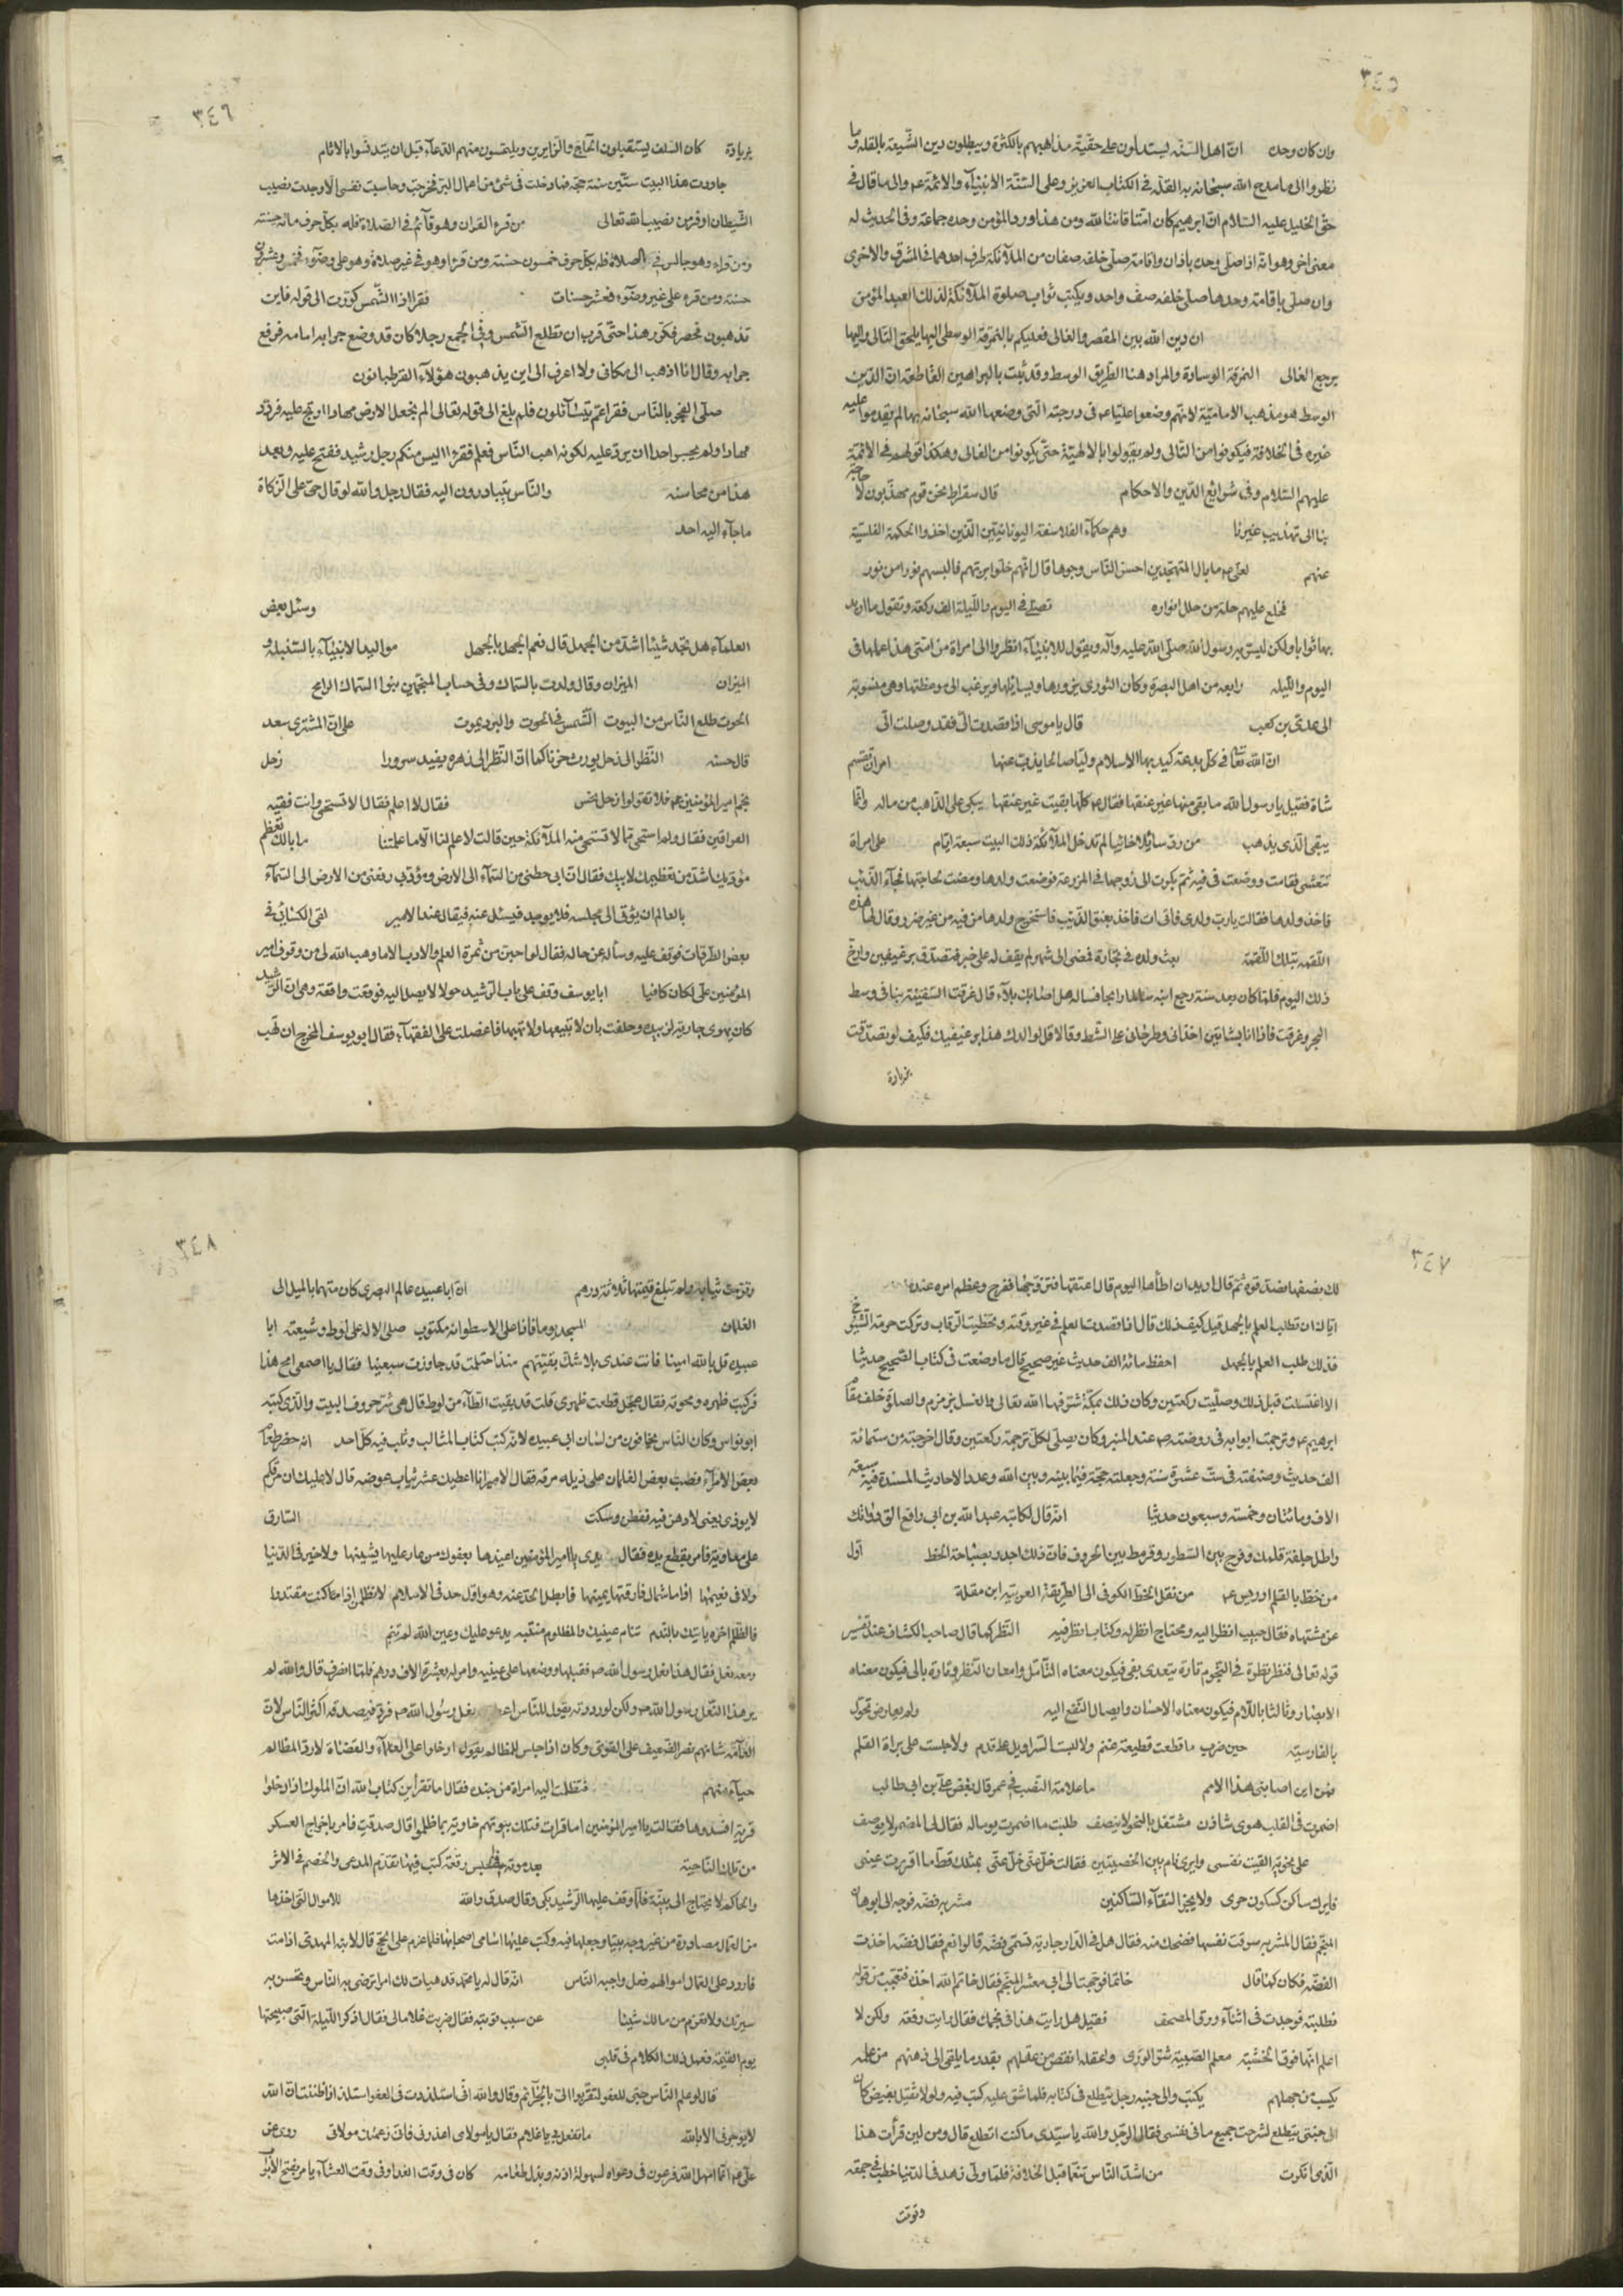 ٣٤٥
وان كان وحده انّ اهل السنّة يستدلون على حقّية مذاهبهم بالكثرة ويبطلون دين الشّيعة بالقلة وما
نظروا الى ما مدح الله سبحانه به القلّة في الكتاب العزيز وعلى السنّة الانبيآء والائمّة عم والى ما قال في
حقّ الخليل عليه السّلام انّ ابرهيم كان امّة قانتا لله ومن هذا ورد المؤمن وحده جماعة وفي الحديث له
معنى اخر وهو انّه اذا صلّى وحده باذان واقامة صلّى خلفه صفان من الملآئكة طرف احدهما في المشرق والاخرى
وان صلّى باقامة وحدها صلّى خلفه صفّ واحد ويكتب ثواب صلوة الملآئكة لذلك العبد المؤمن
ان دين الله بين المقصر والغالى فعليكم بالنمرقة الوسطى اليها يلحق التّالى واليها
يرجع الغالى النمرقة الوسادة والمراد هنا الطّريق الوسط وقد ثبت بالبراهين القاطعة انّ الدّين
الوسط هو مذهب الاماميّة لانّهم وضعوا عليّا عم في درجته الّتى وضعها الله سبحانه بها لم يقدموا عليه
غيره في الخلافة فيكونوا من التّالى ولم يقولوا بالالهيّة حتّى يكونوا من الغالى وهكذا قولهم في الائمّة
عليهم السّلام وفي شرائع الدّين والاحكام قال سقراط نحن قوم مهذّبون لا حاجة
بنا الى تهذيب غيرنا وهم حكمآء الفلاسفة اليونانيّين الّذين اخذوا الحكمة الفلسيّة
عنهم لعلى عم ما بال المتهجّدين احسن النّاس وجوها قال انّهم خلوا بربّهم فالبسهم نورا من نور
فخلع عليهم حلة من حلل انواره تصلّى في اليوم واللّيلة الف ركعة وتقول ما اريد
بها ثوابا ولكن ليسرّ به رسول الله صلّى الله عليه وآله ويقول للانبيآء انظروا الى امراة من امّتى هذا عملها في
اليوم واللّيلة رابعه من اهل البصرة وكان الثّورى يزورها ويسائلها ويرغب الى موعظتها وهى منسوبة
الى عدىّ بن كعب قال يا موسى اذا قصدت الىّ فقد وصلت الىّ
انّ الله تعا في كلّ بدعة كيد بها الاسلام وليّا صالحا يذبّ عنها امر ان تقسم
شاة فقيل يا رسول الله ما بقى منها غير عنقها فقال عم كلّها بقيت غير عنقها يبكى على الذّاهب من ماله وانّما
يبقى الّذى يذهب من ردّ سآئلا خائبا لم تدخل الملآئكة ذلك البيت سبعة ايّام على امراة
تتعشى فقامت ووضعت في فيه ثمّ بكرت الى زوجها في المزرعة فوضعت ولدها ومضت لحاجتها فجآء الذّئب
فاخذ ولدها فقالت يا ربّ ولدى فاتى ات فاخذ بعنق الذّئب فاستخرج ولدها من فيه من غير ضرر وقال لها هذه
اللّقمة بتلك اللّقمة بعث ولده في تجارة فمضى الى شهر لم يقف له على خبر فتصدّق برغيفين وارخ
ذلك اليوم فلمّا كان بعد سنة رجع ابنه سالما رابحا فساله هل اصابك بلآء قال غرقت السّفينة بنا في وسط
البحر وغرقت فاذا انا بشابّين اخذانى وطرحانى على الشّط وقالا قل لوالدك هذا برغيفيك فكيف لو تصدّقت
بزيادة
٣٤٦
بزيادة كان السّلف يستقبلون الحآجّ والزّايرين ويلتمسون منهم الدّعآء قبل ان يتدنّسوا بالاثام
جاورت هذا البيت ستّين سنة حجّة فما دخلت في شئ من اعمال البرّ فخرجت وحاسبت نفسى الّا وجدت نصيب
الشّيطان اوفر من نصيب الله تعالى من قرء القران وهو قآئم في الصّلاة فله بكلّ حرف مائة حسنة
ومن قراه وهو جالس في الصلاة فله بكلّ حرف خمسون حسنة ومن قرا وهو في غير صلاة وهو على وضوء فخمس وعشرون
حسنة ومن قرء على غير وضوء فعشر حسنات فقرا اذا الشّمس كوّرت الى قوله فاين
تذهبون فحصر فكرّر هذا حتّى قرب ان تطلع الشّمس وفي الجمع رجلا كان قد وضع جرابه امامه فرفع
جرابه وقال انا اذهب الى مكانى ولا اعرف الى اين يذهبون هؤلآء القرطبانون
صلّى الفجر بالنّاس فقرا عمّ يتسآئلون فلم بلغ الى قوله تعالى الم نجعل الارض مهادا ارتج عليه فردّد
مهادا ولم يجسر احدا ان يردّ عليه لكونه اهب النّاس فعلم فقرا اليس منكم رجل رشيد ففتح عليه وبعد
هذا من محاسنه والنّاس يتبادرون اليه فقال رجل والله لو قال حىّ على الزّكاة
ما جآء اليه احد
وسئل بعض
العلمآء هل تجد شيئا اشدّ من الجهل قال نعم الجهل بالجهل مواليد الانبيآء بالسّنبلة و
الميزان الميزان وقال ولدت بالسّماك وفي حساب المنجّمين بنوا السّماك الرامح
الحوت طلع النّاس من البيوت الشّمس في الحوت والبرد يموت على انّ المشترى سعد
قال حسنه النّظر الى زحل يورث حزنا كما انّ النّظر الى زهره يفيد سرورا زحل
نجم امير المؤمنين عم فلا تقولوا زحل نحس فقال لا اعلم فقال الا تستحى وانت فقيه
العراقين فقال ولم استحى ممّا لا تستحى منه الملآئكة حين قالت لا علم لنا الّا ما علمتنا ما بالك تعظم
مؤدّبك اشدّ من تعظيمك لابيك فقال انّ ابى حطنى من السّمآء الى الارض ومؤدّبى رفعنى من الارض الى السّمآء
بالعالم ان يؤتى الى مجلسه فلا يوجد فيسئل عنه فيقال عند الامير لقى الكسائى في
بعض الطّرقات فوقف عليه وسأله عن حاله فقال لو لم اجن من ثمرة العلم والادب الّا ما وهب الله لى من وقوف امير
المؤمنين علىّ لكان كافيا ابا يوسف وقف على باب الرّشيد حولا لا يصل اليه فوقعت واقعة وهى انّ الرّشيد
كان يهوى جارية لزبيده وحلفت بان لا تبيعها ولا تهبها فاعضلت على الفقهآء فقال ابو يوسف المخرج ان تهب
٣٤٧
لك نصفها فصدّقوه ثمّ قال اريد ان اطأها اليوم قال اعتقها فتزوّجها ففرح وعظم امره عنده
ايّاك ان تطلب العلم بالجهل قيل كيف ذلك قال اذا قصدت العلم في غير وقته وتخطّيت الرّقاب وتركت حرمة الشّيوخ
فذلك طلب العلم بالجهل احفظ مائة الف حديث غير صحيح قال ما وضعت في كتاب الصّحيح حديثا
الا اغتسلت قبل ذلك وصلّيت ركعتين وكان ذلك بمكّة شرّفها الله تعالى والغسل بزمزم والصلوة خلف مقام
ابرهيم عم وترجمت ابوابه في روضته صم عند المنبر وكان يصلّى لكلّ ترجمة ركعتين وقال اخرجته من ستّمائة
الف حديث وصنفته في ستّ عشرة سنة وجعلته حجّة فيما بينه وبين الله وعدد الاحاديث المسندة فيه سبعة
الاف ومائتان وخمسة وسبعون حديثا انّه قال لكاتبه عبد الله بن ابى رافع الق دواتك
واطل جلفة قلمك وفرج بين السّطور وقرمط بين الحروف فانّ ذلك اجدر بصباحة الخط اوّل
من خطّ بالقلم ادريس عم من نقل الخطّ الكوفى الى الطّريقة العربيّة ابن مقلة
عن مشتهاه فقال حبيب انظر اليه ومحتاج انظر له وكتاب انظر فيه النّظر كما قال صاحب الكشّاف عند تفسير
قوله تعالى فنظر نظرة في النّجوم تارة يتعدى بفى فيكون معناه التّأمّل وامعان النّظر وتارة بالى فيكون معناه
الابصار وثالثا باللّام فيكون معناه الاحسان وايصال النّفع اليه
بالفارسيّة حين ضرب ما قطعت قطيعة غنم ولا لبست السّراويل على قدم ولا جلست على براة القلم
فمن اين اصابنى هذا الامم ما علامة النّصب في عمر قال بغض علىّ بن ابى طالب
اضمرت في القلب هوى شاذن مشتغل بالنّحو لا ينصف طلبت ما اضمرت يوما له فقال لى المضمر لا يوصف
على نحويّة القيت نفسى وايرى نام بين الخصيتين فقالت خلّ عنّى خلّ عنّى بمثلك قطّ ما اقررت عينى
فايرك ساكن كسكون حرى ولا يجيز التقآء السّاكنين مشربه فضّه فوجه الى ابو هان
المنجّم فقال المشربه سرقت نفسها فضحك منه فقال هل في الدّار جارية تسمّى فضّة قالوا نعم فقال فضّه اخذت
الفضّه فكان كما قال خاتما فوجّهت الى ابى معشر المنجّم فقال خاتم الله اخذه فتعجّبت من قوله
فطلبته فوجدت في اثنآء ورق المصحف فقيل هل رايت هذا في نجمك فقال رايت رفعة ولكن لا
اعلم انّها فوق الخشبة معلم الصّبية شرّ الورى واعقلهم انقص من عقلهم بقدر ما يلقى الى ذهنهم من علمه
يكسب من جهلهم يكتب والى جنبه رجل يتطلع في كتابه فلما شقّ عليه كتب فيه ولولا ثقيل بغيض كان
الى جنبى يتطلع لشرحت جميع ما في نفسى فقال الرّجل والله يا سيّدى ما كنت اتطلع قال ومن اين قرأت هذا
الّذى انكرت من اشدّ النّاس تنعّما قبل الخلافة فلمّا ولّى زهد في الدّنيا خطب في جمعة
وقومت
٣٤٨
وقوّمت ثيابه ولم تبلغ قيمتها ثلاثة درهم انّ ابا عبيدة عالم البصرى كان متهما بالميل الى
الغلمان المسجد يوما فاذا على الاسطوانة مكتوب صلى الاله على لوط وشيعته ابا
عبيدة قل بالله امينا فانت عندى بلا شكّ بقيّتهم منذ احتلمت قد جاوزت سبعينا فقال يا اصمعى امح هذا
فركبت ظهره ومحوته فقال عجّل قطعت ظهرى قلت قد بقيت الطّآء من لوط قال هى شرّ حروف البيت والّذى كتبه
ابو نواس وكان النّاس يخافون من لسان ابى عبيدة لانّه كتب كتاب المثالب وثلب فيه كلّ احد انه حضر طعام
بعض الامرآء فصبّ بعض الغلمان على ذيله مرقه فقال الامير انا اعطيك عشر ثياب عوضه قال لا عليك ان مرقكم
لا يوذى يعنى لا دهن فيه ففطن وسكت السّارق
على معاوية فامر بقطع يده فقال يدى يا امير المؤمنين اعيذها بعفوك من عار عليها يشينها ولا خير في الدّنيا
ولا في نعيمها اذا ما شمال فارقتها يمينها فابطل الحدّ عنه وهو اوّل حد في الاسلام لا تظلمن اذا ما كنت مقتدرا
فالظّلم اخره ياتيك بالنّدم تنام عينيك والمظلوم منتبه يدعو عليك وعين الله لم تنم
ومعه نعل فقال هذا نعل رسول الله صم فقبلها ووضعها على عينيه وامر له بعشرة الاف درهم فلمّا انصرف قال والله لم
ير هذا النّعل رسول الله صم ولكن لو رددته يقول للنّاس نعل رسول الله صم فردّه فيصدقه اكثر النّاس لانّ
العآمّة شانهم نصر الضّعيف على القوىّ وكان اذا جلس للمظالم يقول ادخلوا علىّ العلمآء والقضاة لارد المظالم
حيآء منهم فتظلّمت اليه امراة من جنده فقال ما تقرأين كتاب الله انّ الملوك اذا دخلوا
قرية افسدوها فقالت يا امير المؤمنين اما قرات فتلك بيوتهم خاوية بما ظلموا قال صدقت فامر باخراج العسكر
من تلك النّاحية بعد موته رقعة كتب فيها تقدّم المدعى والخصم في الاثر
والحاكم لا يحتاج الى بيّنة فلمّا وقف عليها الرّشيد بكى وقال صدق والله للاموال الّتى اخذها
من العمّال مصادرة من غير وجه بيتا وجعلها فيه وكتب عليها اسامى اصحابها فلما عزم على الحجّ قال لابنه المهدى اذا مت
فاردد على العمّال اموالهم ففعل واحبه النّاس انّه قال له يا محمّد قد هيات لك امرا ترضى به النّاس وتحسن به
سيرتك ولا تغرم من مالك شيئا عن سبب توبته فقال ضربت غلاما لى فقال اذكر اللّيلة الّتى صبيحتها
يوم القيمة فعمل ذلك الكلام في قلبى
قال لو علم النّاس حبّى للعفو لتقرّبوا الىّ بالجرآئم وقال والله
لا يوجرنى الا بالله ما تفعل بى يا غلام فقال يا مولاى اعذرنى فانّى زعمتك مولاتى روى عن
علىّ عم انّما امهل الله فرعون في دعواه لسهولة اذنه وبذل طعامه كان في وقت الغدا وفي وقت العشآء يامر بفتح الابواب